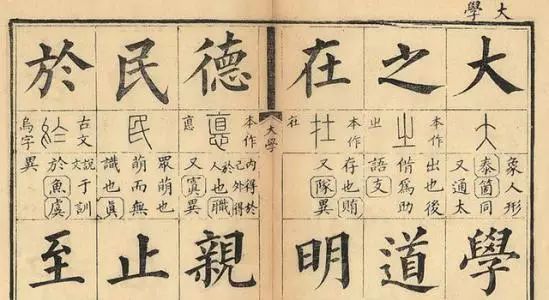 大學
大
象人形
泰箇同
又通太
學
之
㞢
出也後
借為助
語支
道
在
本作
存也賄
又隊異
明
大學
德
本作
悳
內得於
己外得
於人也職
又寘異
親
民
眾萌也
萌而無
識也真
止
於
古文
烏字
說文于訓
於魚虞
異
至